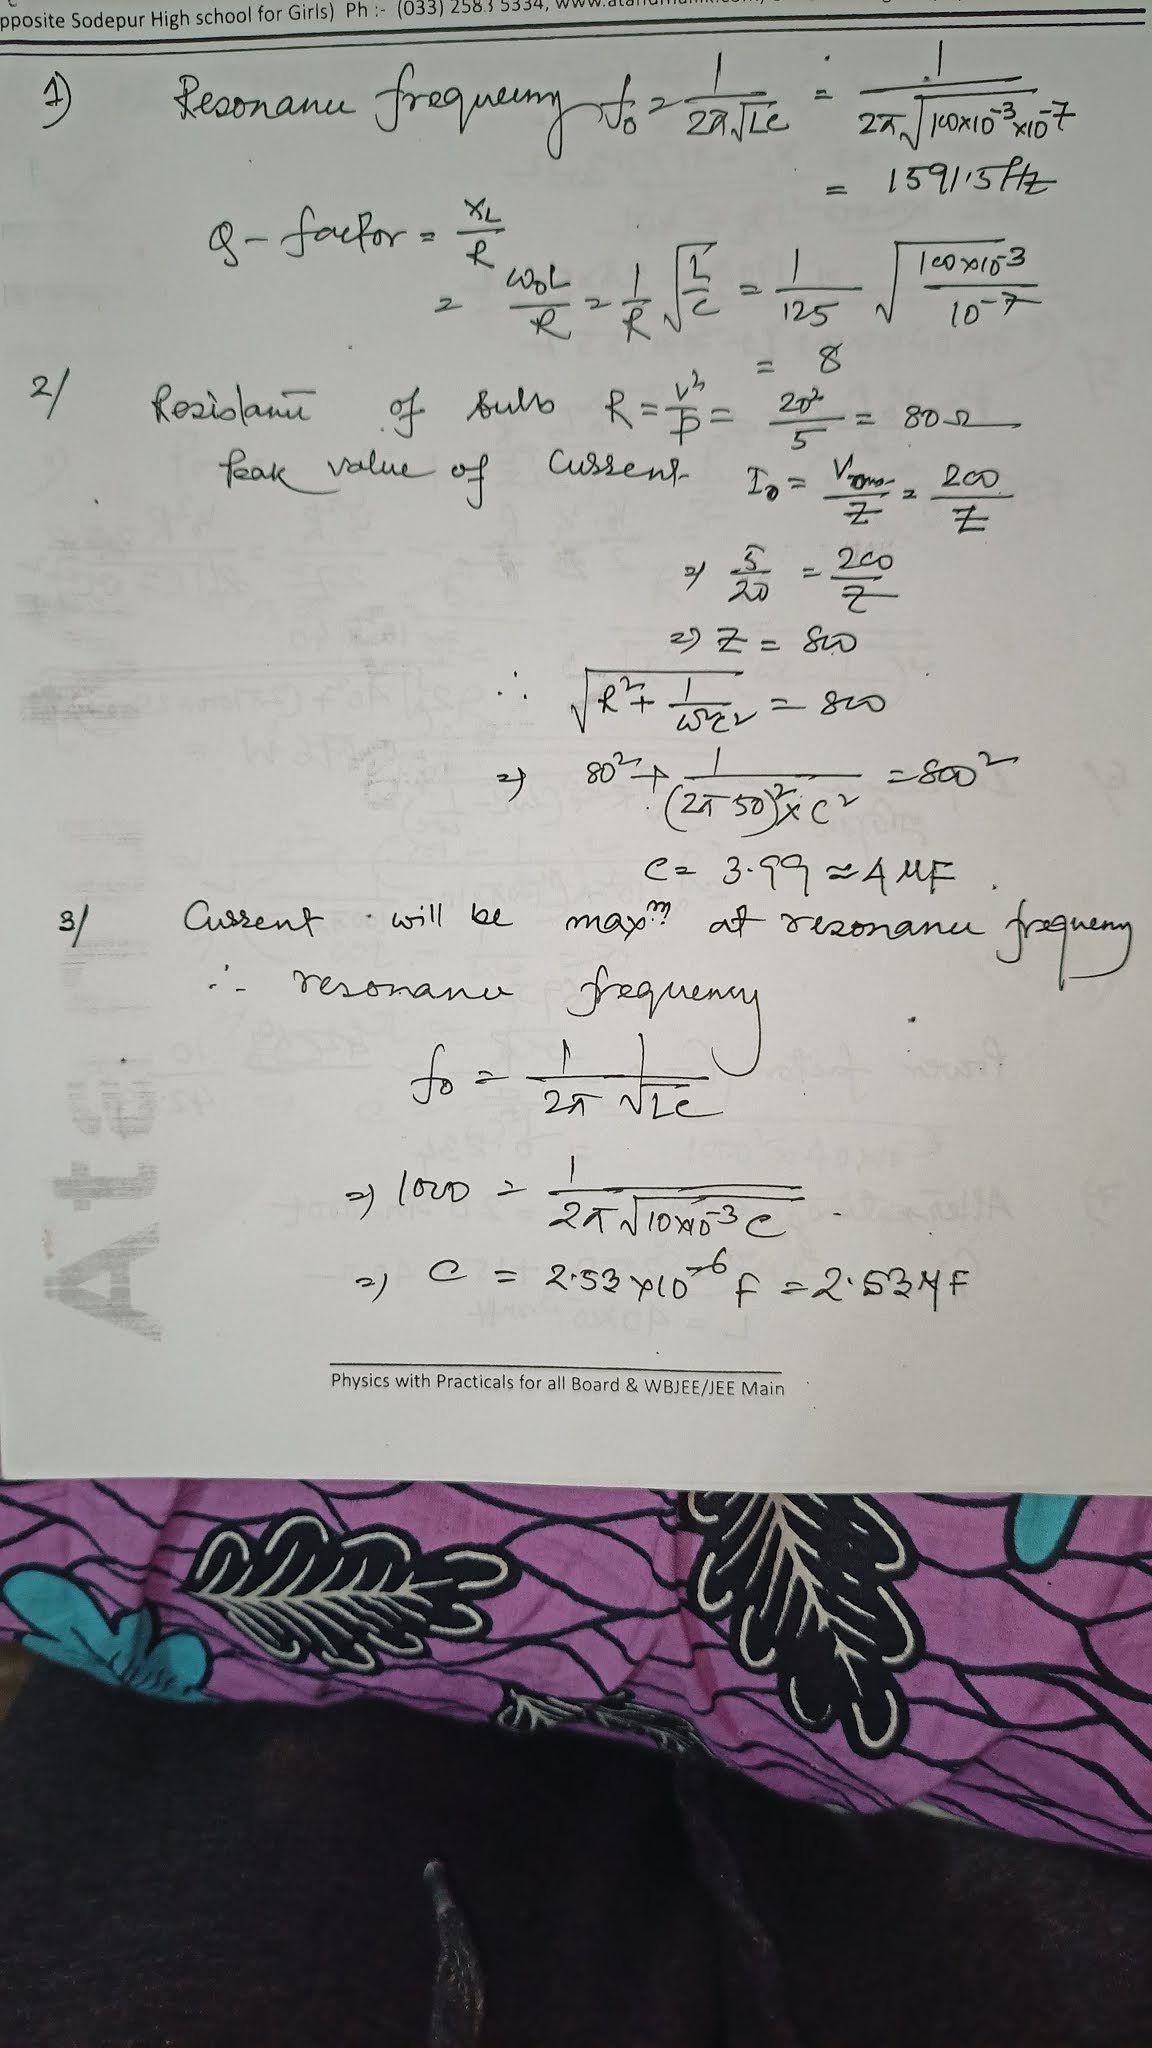 pposite Sodepur High school for Girls) Ph :- (033) 2583 5334, www.atanumallik.com,
1) Resonance frequency f₀ = 1/(2π√LC) = 1/(2π√(100×10⁻³×10⁻⁷))
= 1591.5 Hz
Q - factor = X_L/R
= ω₀L/R = 1/R √(L/C) = 1/125 √(100×10⁻³/10⁻⁷)
= 8
2/ Resistance of bulb R = V²/P = 20²/5 = 80Ω
Peak value of current I₀ = V_rms/Z = 200/Z
⇒ 5/20 = 200/Z
⇒ Z = 800
∴ √(R² + 1/(ω²c²)) = 800
⇒ 80² + 1/((2π 50)² × C²) = 800²
C = 3.99 ≈ 4 μF.
3/ Current will be maxᵐ at resonance frequency
∴ resonance frequency
f₀ = 1/(2π) 1/√LC
⇒ 1000 = 1/(2π√(10×10⁻³ C))
⇒ C = 2.53×10⁻⁶ F = 2.53 μF
Physics with Practicals for all Board & WBJEE/JEE Main